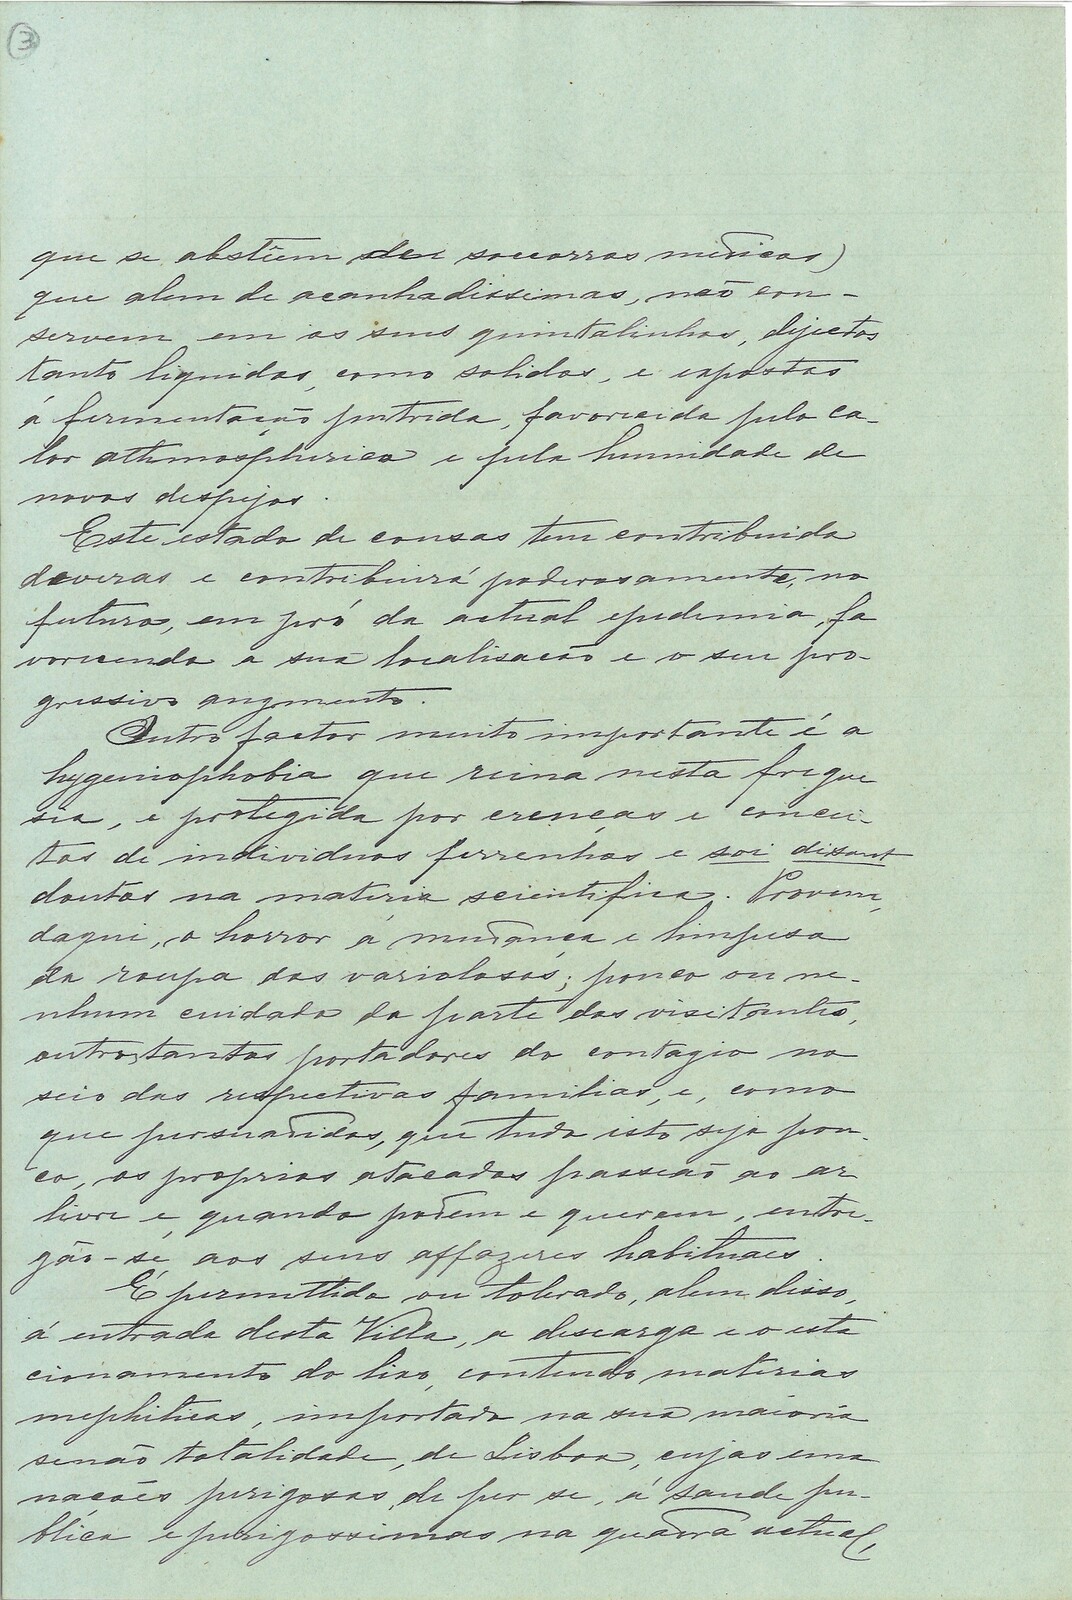 3
que se abstêem dos soccorros medicos)
que alem de acanhadissimas, não con-
servem em os seus quintalinhos, dejectos
tanto liquidos, como solidos, e expostos
á fermentação putrida, favorecida pelo ca-
lor athmospherico e pela humidade de
novos despejos.
Este estado de cousas tem contribuido
deveras e contribuirá poderosamente, no
futuro, em pró da actual epidemia, fa
vorecendo a sua localisação e o seu pro-
gressivo augmento.
Outro factor muito importante é a
hygeniophobia que reina nesta fregue
sia, e protegida por crenças e concei-
tos de individuos ferrenhos e soi disant
doutos na materia scientifica. Provem,
daqui, o horror á mudança e limpesa
da roupa dos variolosos; pouco ou ne-
nhum cuidado da parte dos visitantes,
outros tantos portadores do contagio no
seio das respectivas familias, e, como
que persuadidos, que tudo isto seja pou-
co, os proprios atacados passeão ao ar
livre e, quando podem e querem, entre-
gão-se, aos seus affazeres habituaes.
É permittido ou tolerado, alem disso,
á entrada desta Villa, a descarga e o esta
cionamento do lixo, contendo materias
mephiticas, importado na sua maioria
senão totalidade, de Lisboa, cujas ema
nações perigosas, de per se, á saude pu-
blica e perigossimas na quadra actual,